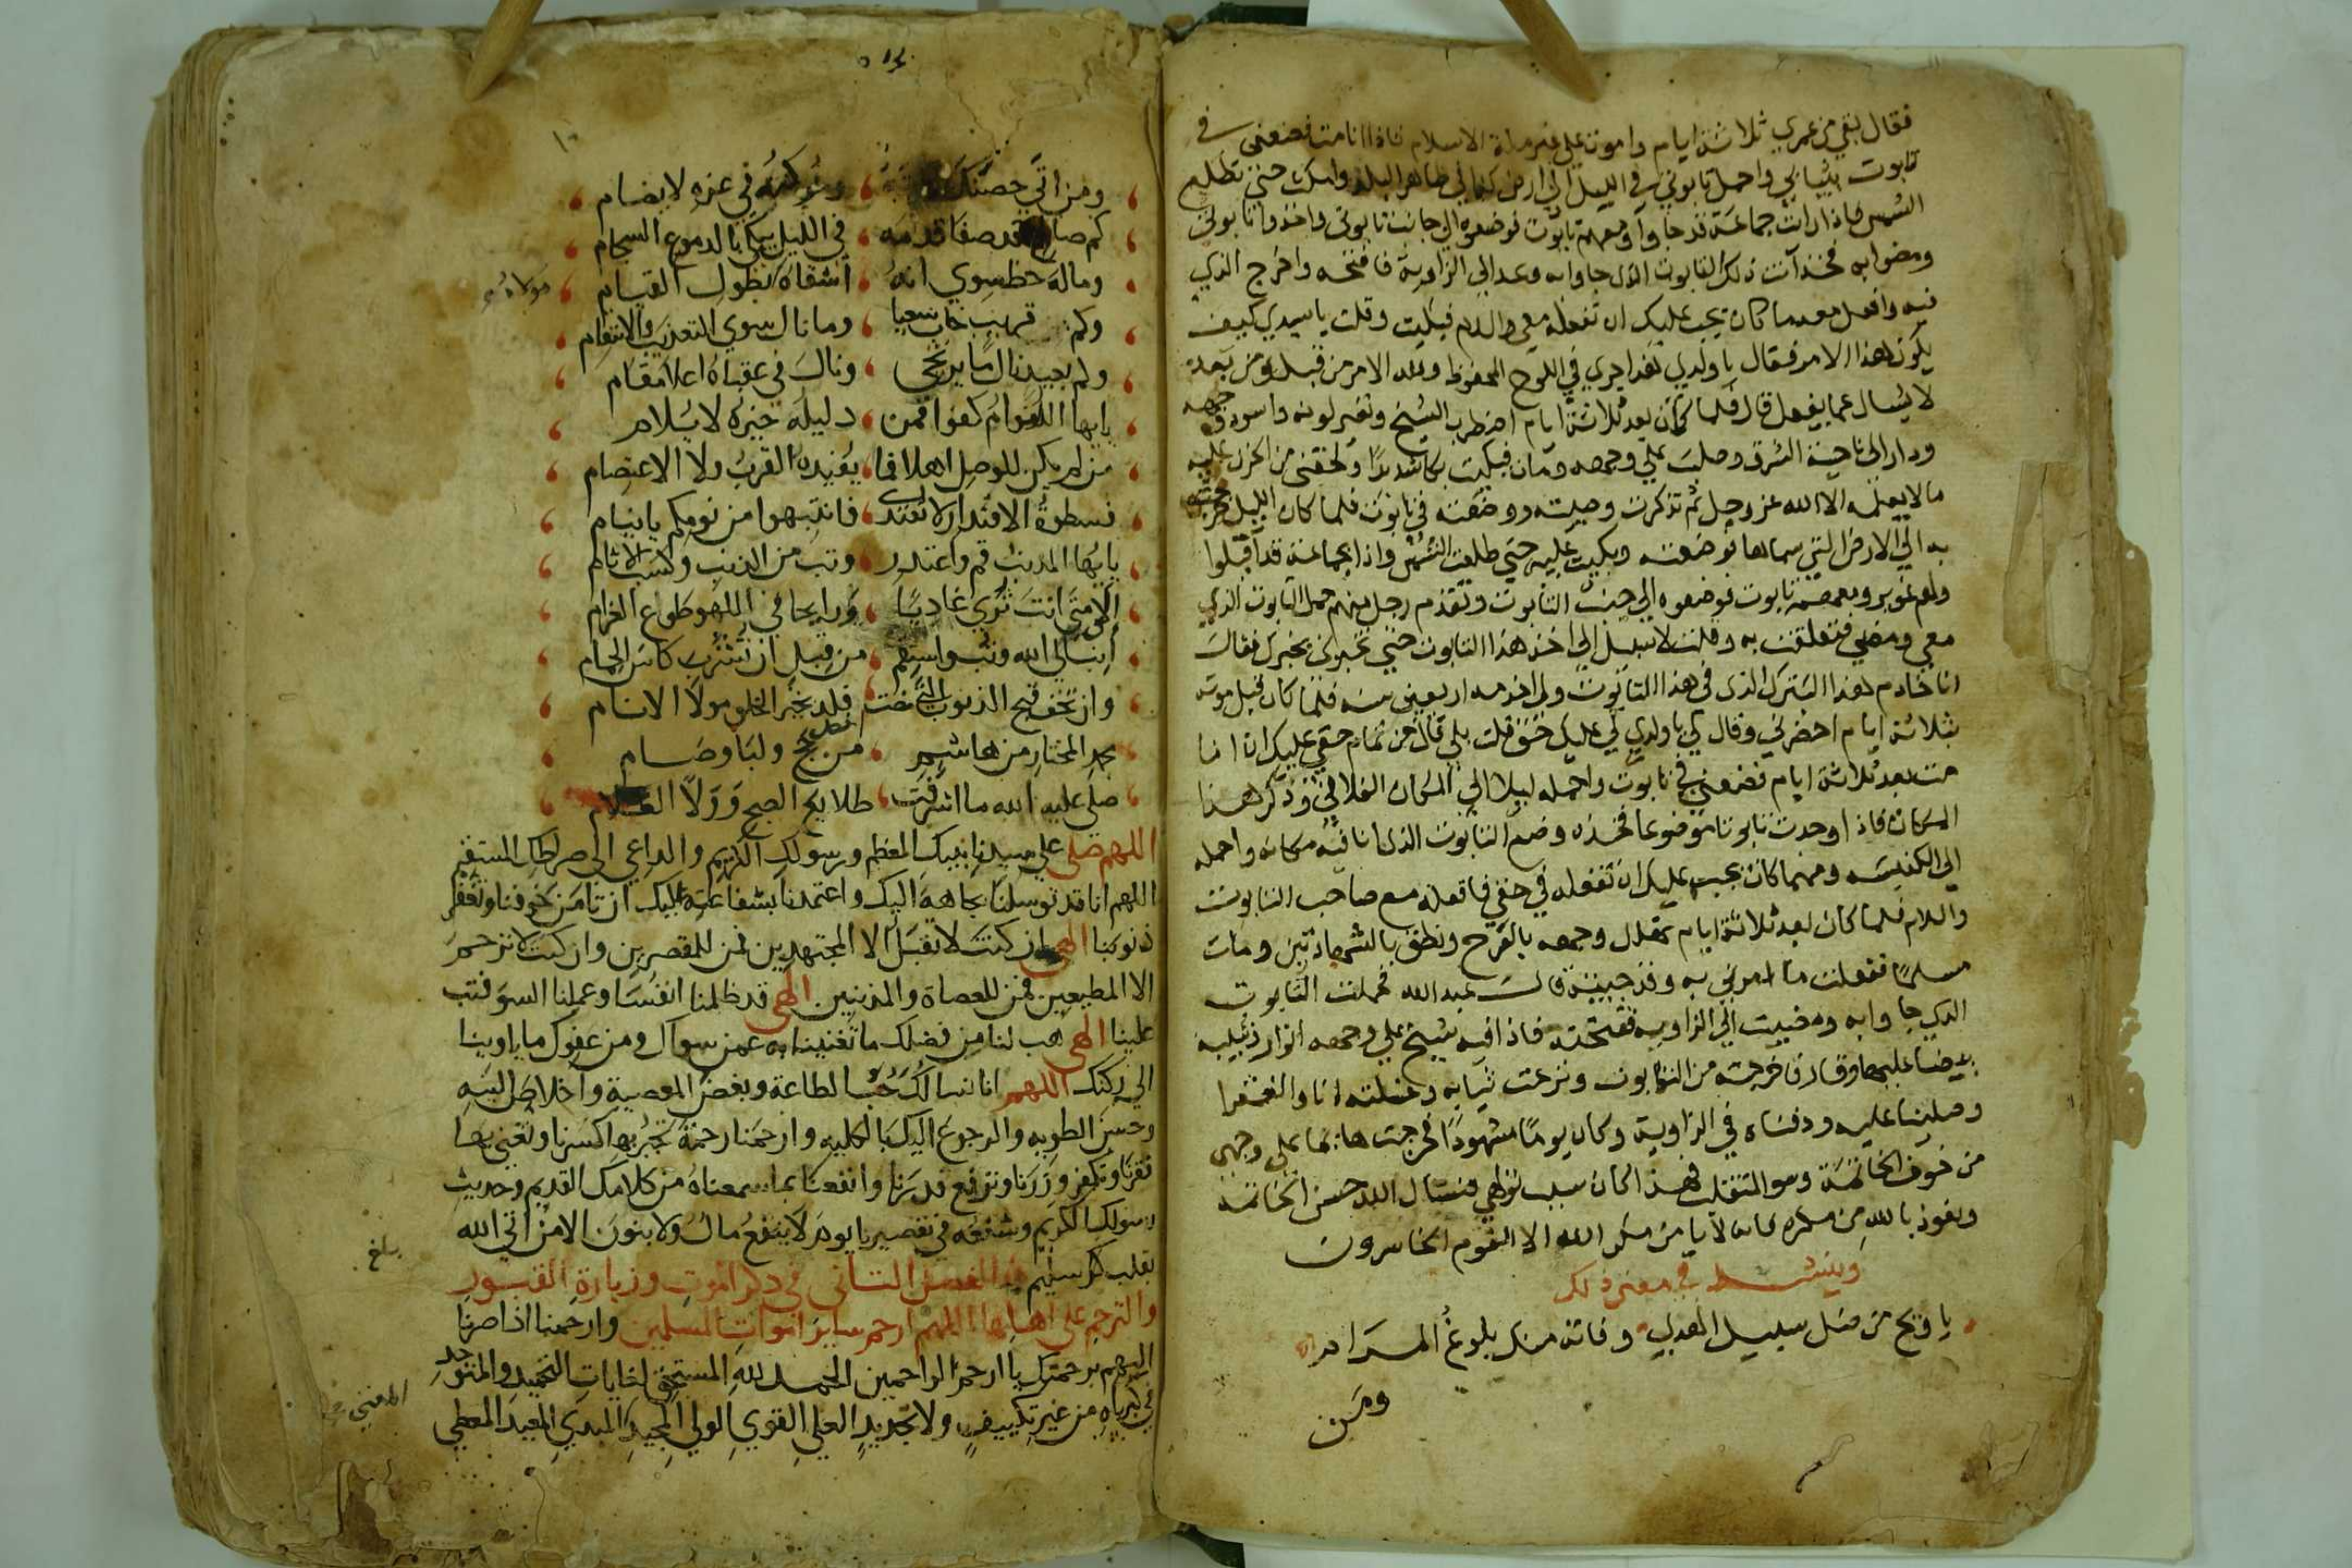 فقال بقي من عمري ثلاثة ايام واموت على غير ملة الاسلام فاذا انا مت فضعني في
تابوت بثيابي واحمل تابوتي في الليل الى ارض كذا الى ظاهر البلد وامكث حتى تطلع
الشمس فاذا رايت جماعة قد جاوا ومعهم تابوت فوضعوه الى جانب تابوتي واخذوا تابوتي
ومضوا به فخذ انت ذلك التابوت الذي جاوا به وعد الى الزاوية فافتحه واخرج الذي
فيه وافعل معه ما كان يجب عليك ان تفعله معي والسلام فبكيت وقلت يا سيدي كيف
يكون هذا الامر فقال يا ولدي لقد اجري في اللوح المحفوظ ولله الامر من قبل ومن بعد
لا يسال عما يفعل قال فلما كان بعد ثلاثة ايام اضطرب الشيخ وتغير لونه واسود وجهه
ودار الى ناحية الشرق وصلب على وجهه ومات فبكيت بكا شديدا ولحقني من الحزن عليه
ما لا يعلمه الا الله عز وجل ثم تذكرت وصيته ووضعته في تابوت فلما كان الليل خرجت
به الى الارض التي سماها فوضعته وبكيت عليه حتى طلعت الشمس واذا بجماعة قد اقبلوا
ولهم ومعهم تابوت فوضعوه الى جنب التابوت وتقدم رجل منهم حمل التابوت الذي
معي ومضى فتعلقت به وقلت لا سبيل الى اخذ هذا التابوت حتى تخبرني بخبرك فقال
انا خادم لهذا البترك الذي في هذا التابوت ولي اخدمه اربعين سنة فلما كان قبل موته
بثلاثة ايام احضرني وقال لي يا ولدي لي عليك حق قلت بلى قال من تمام حقي عليك ان انا
مت بعد ثلاثة ايام فضعني في تابوت واحمله ليلا الى المكان الفلاني وذكر هذا
المكان فاذا وجدت تابوتا موضوعا فخذه وضع التابوت الذي انا فيه مكانه واحمله
الى الكنيسة ومهما كان يجب عليك ان تفعله في حقي فافعله مع صاحب التابوت
والسلام فلما كان بعد ثلاثة ايام تهلل وجهه بالفرح ونطق بالشهادتين ومات
مسلما ففعلت ما امرني به وقد جيت قال عبد الله فحملت التابوت
الذي جاوا به ومضيت الى الزاوية ففتحته فاذا فيه شيخ على وجهه انوار
بيضا عليه وقار فاخرجته من التابوت ونزعت ثيابه وغسلته انا والفقرا
وصلينا عليه ودفناه في الزاوية وكان يوما مشهودا فخرجت هايما على وجهي
من خوف الخاتمة وسو المنقلب فهذا كان سبب تولهي فنسال الله حسن الخاتمة
ونعوذ بالله من مكره فانه لا يامن مكر الله الا القوم الخاسرون
وينشد في معنى ذلك
يا ويح من ضل سبيل الهدى وفاته منك بلوغ المرام
ومن
ومن اتى حصنك ومن تركته في عزه لا يضام
كم صا قد صفا قدمه في الليل يبكي بالدموع السجام
وماله حظ سوى انه اشقاه بطول القيام
وكم قريب خاب سعيا وما نال سوى التعذيب والانتقام
وكم بعيد نال ما يرتجي ونال في عقباه اعلا مقام
يايها اللوام كفوا فمن دليله حيره لا يلام
من لم يكن للوصل اهلا فما يفيده القرب ولا الاعتصام
فسطوة الاقتدار لا تعتدى فانتبهوا من نومكم يانيام
يايها المذنب قم واعتذر وتب من الذنب وكسب الاثام
الى متى انت ترى غاديا ورايحا في اللهو طوع الغرام
انب الى الله وتب واستقم من قبل ان تشرب كاس الحمام
وان تخف قبح الذنوب التي مضت فلذ بخير الخلق مولا الانام
محمد المختار من هاشم من حج ولبا وصام
صلى عليه الله ما اشرقت طلايع الصبح وولا الظلام
اللهم صلي على سيدنا نبيك المعظم ورسولك الكريم والداعي الى صراطك المستقيم
اللهم انا قد توسلنا بجاهه اليك واعتمدنا بشفاعته عليك ان تامن خوفنا وتغفر
ذنوبنا الهي ان كنت لا تقبل الا المجتهدين فمن للمقصرين وان كنت لا ترحم
الا المطيعين فمن للعصاة والمذنبين الهي قد ظلمنا انفسنا وعملنا السو فتب
علينا الهي هب لنا من فضلك ما تغنينا به عمن سواك ومن عفوك ما ياوينا
الى ركنك اللهم انا نسالك حب الطاعة وبغض المعصية واخلاص النيه
وحسن الطويه والرجوع اليك بالكليه وارحمنا رحمة تجبر بها كسرنا وتغني بها
فقرنا وتكفر وزرنا وترفع قدرنا وانفعنا بما سمعناه من كلامك القديم وحديث
رسولك الكريم وشفعه في تقصيرنا يوم لا ينفع مال ولا بنون الا من اتى الله
بقلب سليم الفصل الثاني في ذكر الموت وزيارة القبور
والترحم على اهلها اللهم ارحم ساير اموات المسلمين وارحمنا اذا صرنا
اليهم برحمتك يا ارحم الراحمين الحمد لله المستحق لغايات التحميد والمتوحد
في كبرياه من غير تكييف ولا تحديد العلي القوي الولي المجيد المبدي المعيد المعطي
بلغ